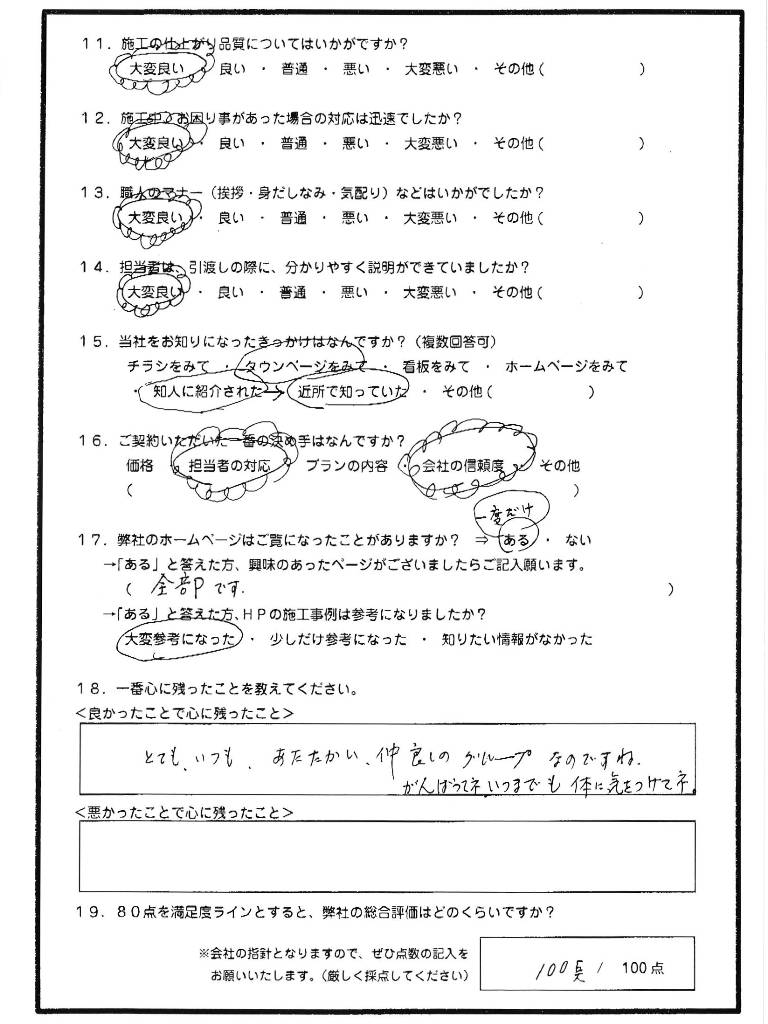 11．施工の仕上がり品質についてはいかがですか？
大変良い ・ 良い ・ 普通 ・ 悪い ・ 大変悪い ・ その他（ ）
12．施工中、お困り事があった場合の対応は迅速でしたか？
大変良い ・ 良い ・ 普通 ・ 悪い ・ 大変悪い ・ その他（ ）
13．職人のマナー（挨拶・身だしなみ・気配り）などはいかがでしたか？
大変良い ・ 良い ・ 普通 ・ 悪い ・ 大変悪い ・ その他（ ）
14．担当者は、引渡しの際に、分かりやすく説明ができていましたか？
大変良い ・ 良い ・ 普通 ・ 悪い ・ 大変悪い ・ その他（ ）
15．当社をお知りになったきっかけはなんですか？（複数回答可）
チラシをみて ・ タウンページをみて ・ 看板をみて ・ ホームページをみて
・ 知人に紹介された → 近所で知っていた ・ その他（ ）
16．ご契約いただいた一番の決め手はなんですか？
価格 担当者の対応 ・ プランの内容 ・ 会社の信頼度 ・ その他
（ ）
一度だけ
17．弊社のホームページはご覧になったことがありますか？ ⇒ ある ・ ない
→「ある」と答えた方、興味のあったページがございましたらご記入願います。
（ 全部です. ）
→「ある」と答えた方、ＨＰの施工事例は参考になりましたか？
大変参考になった ・ 少しだけ参考になった ・ 知りたい情報がなかった
18．一番心に残ったことを教えてください。
＜良かったことで心に残ったこと＞
とても、いつも、あたたかい、仲良しのグループなのですね.
がんばってネ いつまでも体に気をつけてネ。
＜悪かったことで心に残ったこと＞
19．80点を満足度ラインとすると、弊社の総合評価はどのくらいですか？
※会社の指針となりますので、ぜひ点数の記入を
お願いいたします。（厳しく採点してください）
100点 / 100点